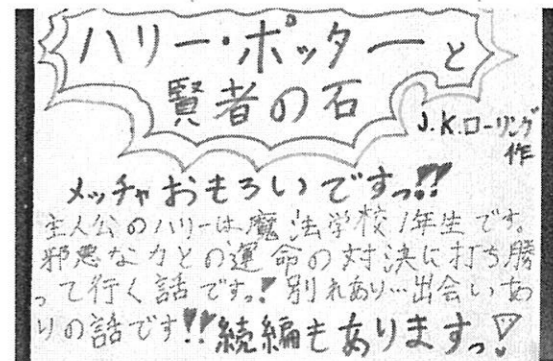 ハリー・ポッターと
賢者の石
J.K.ローリング
作
メッチャおもろいですっ!!
主人公のハリーは魔法学校1年生です。
邪悪な力との運命の対決に打ち勝
って行く話ですっ!別れあり…出会いあ
りの話です!!続編もありますっ!